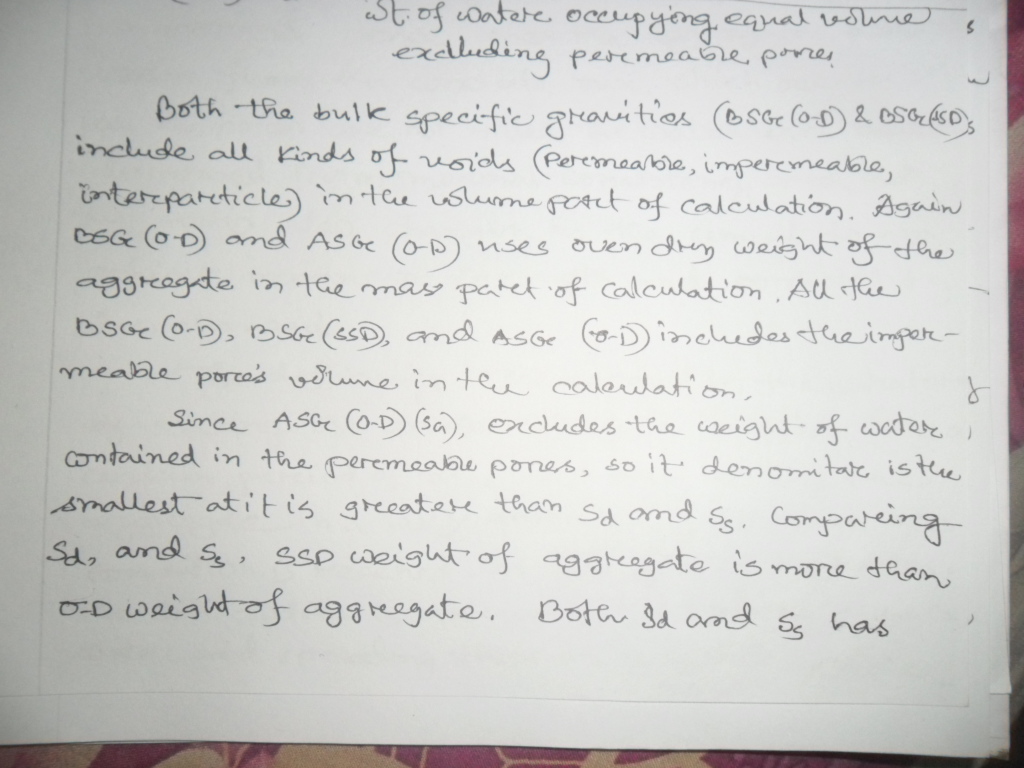 wt. of water occupying equal volume
excluding permeable pores
Both the bulk specific gravities (BSG (O-D) & BSG (SSD)
include all kinds of voids (permeable, impermeable,
interparticle) in the volume part of calculation. Again
BSG (O-D) and ASG (O-D) uses oven dry weight of the
aggregate in the mass part of calculation. All the
BSG (O-D), BSG (SSD), and ASG (O-D) includes the imper-
meable pores volume in the calculation.
Since ASG (O-D) (Sa), excludes the weight of water
contained in the permeable pores, so it denomitar is the
smallest at it is greater than Sd and Ss. Comparing
Sd, and Ss, SSD weight of aggregate is more than
O-D weight of aggregate. Both Sd and Ss has